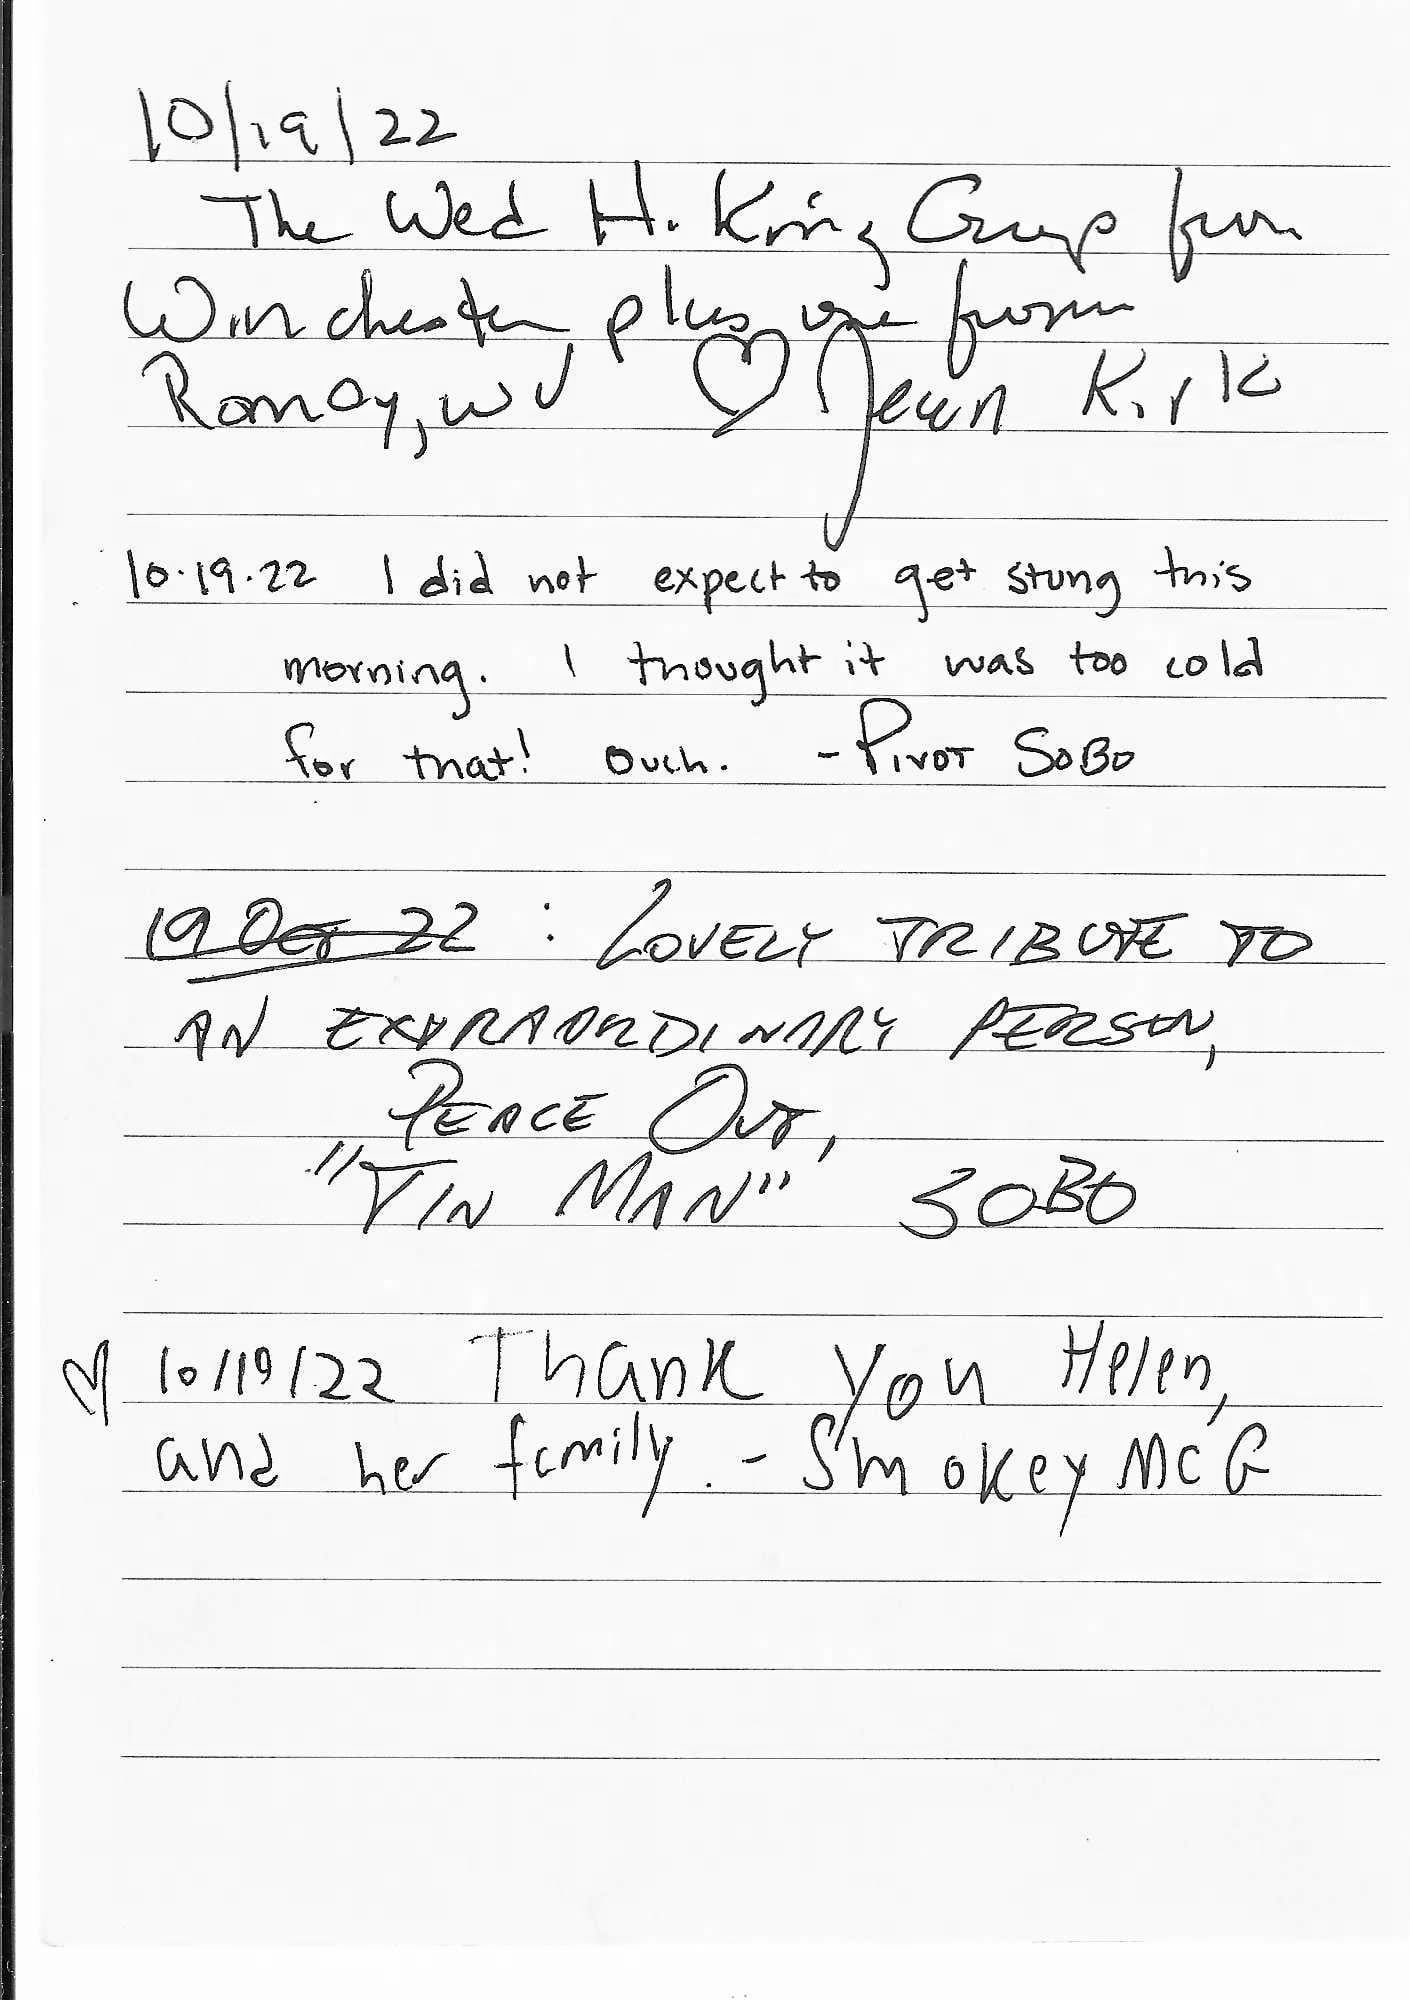 10/19/22
The Wed H. King Group from
Winchester, plus one from
Romny, WV ♡ Jean Kirk
10.19.22 I did not expect to get stung this
morning. I thought it was too cold
for that! Ouch. - PIVOT SOBO
19 OCT 22 : LOVELY TRIBUTE TO
AN EXTRAORDINARY PERSON,
PEACE OUT,
"TIN MAN" SOBO
♡ 10/19/22 Thank you Helen,
and her family. - Smokey McG